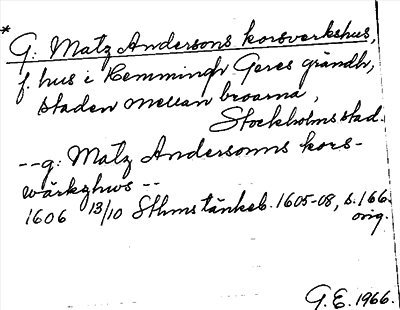 * G: Matz Andersons korsverkshus,
f. hus i Hemmingh Geres grändh,
staden mellan broarna,
Stockholms stad.
-- g: Matz Andersonns kors-
wärkzhws --
1606 13/10 Sthms tänkeb. 1605-08, s. 166.
orig.
G.E. 1966.